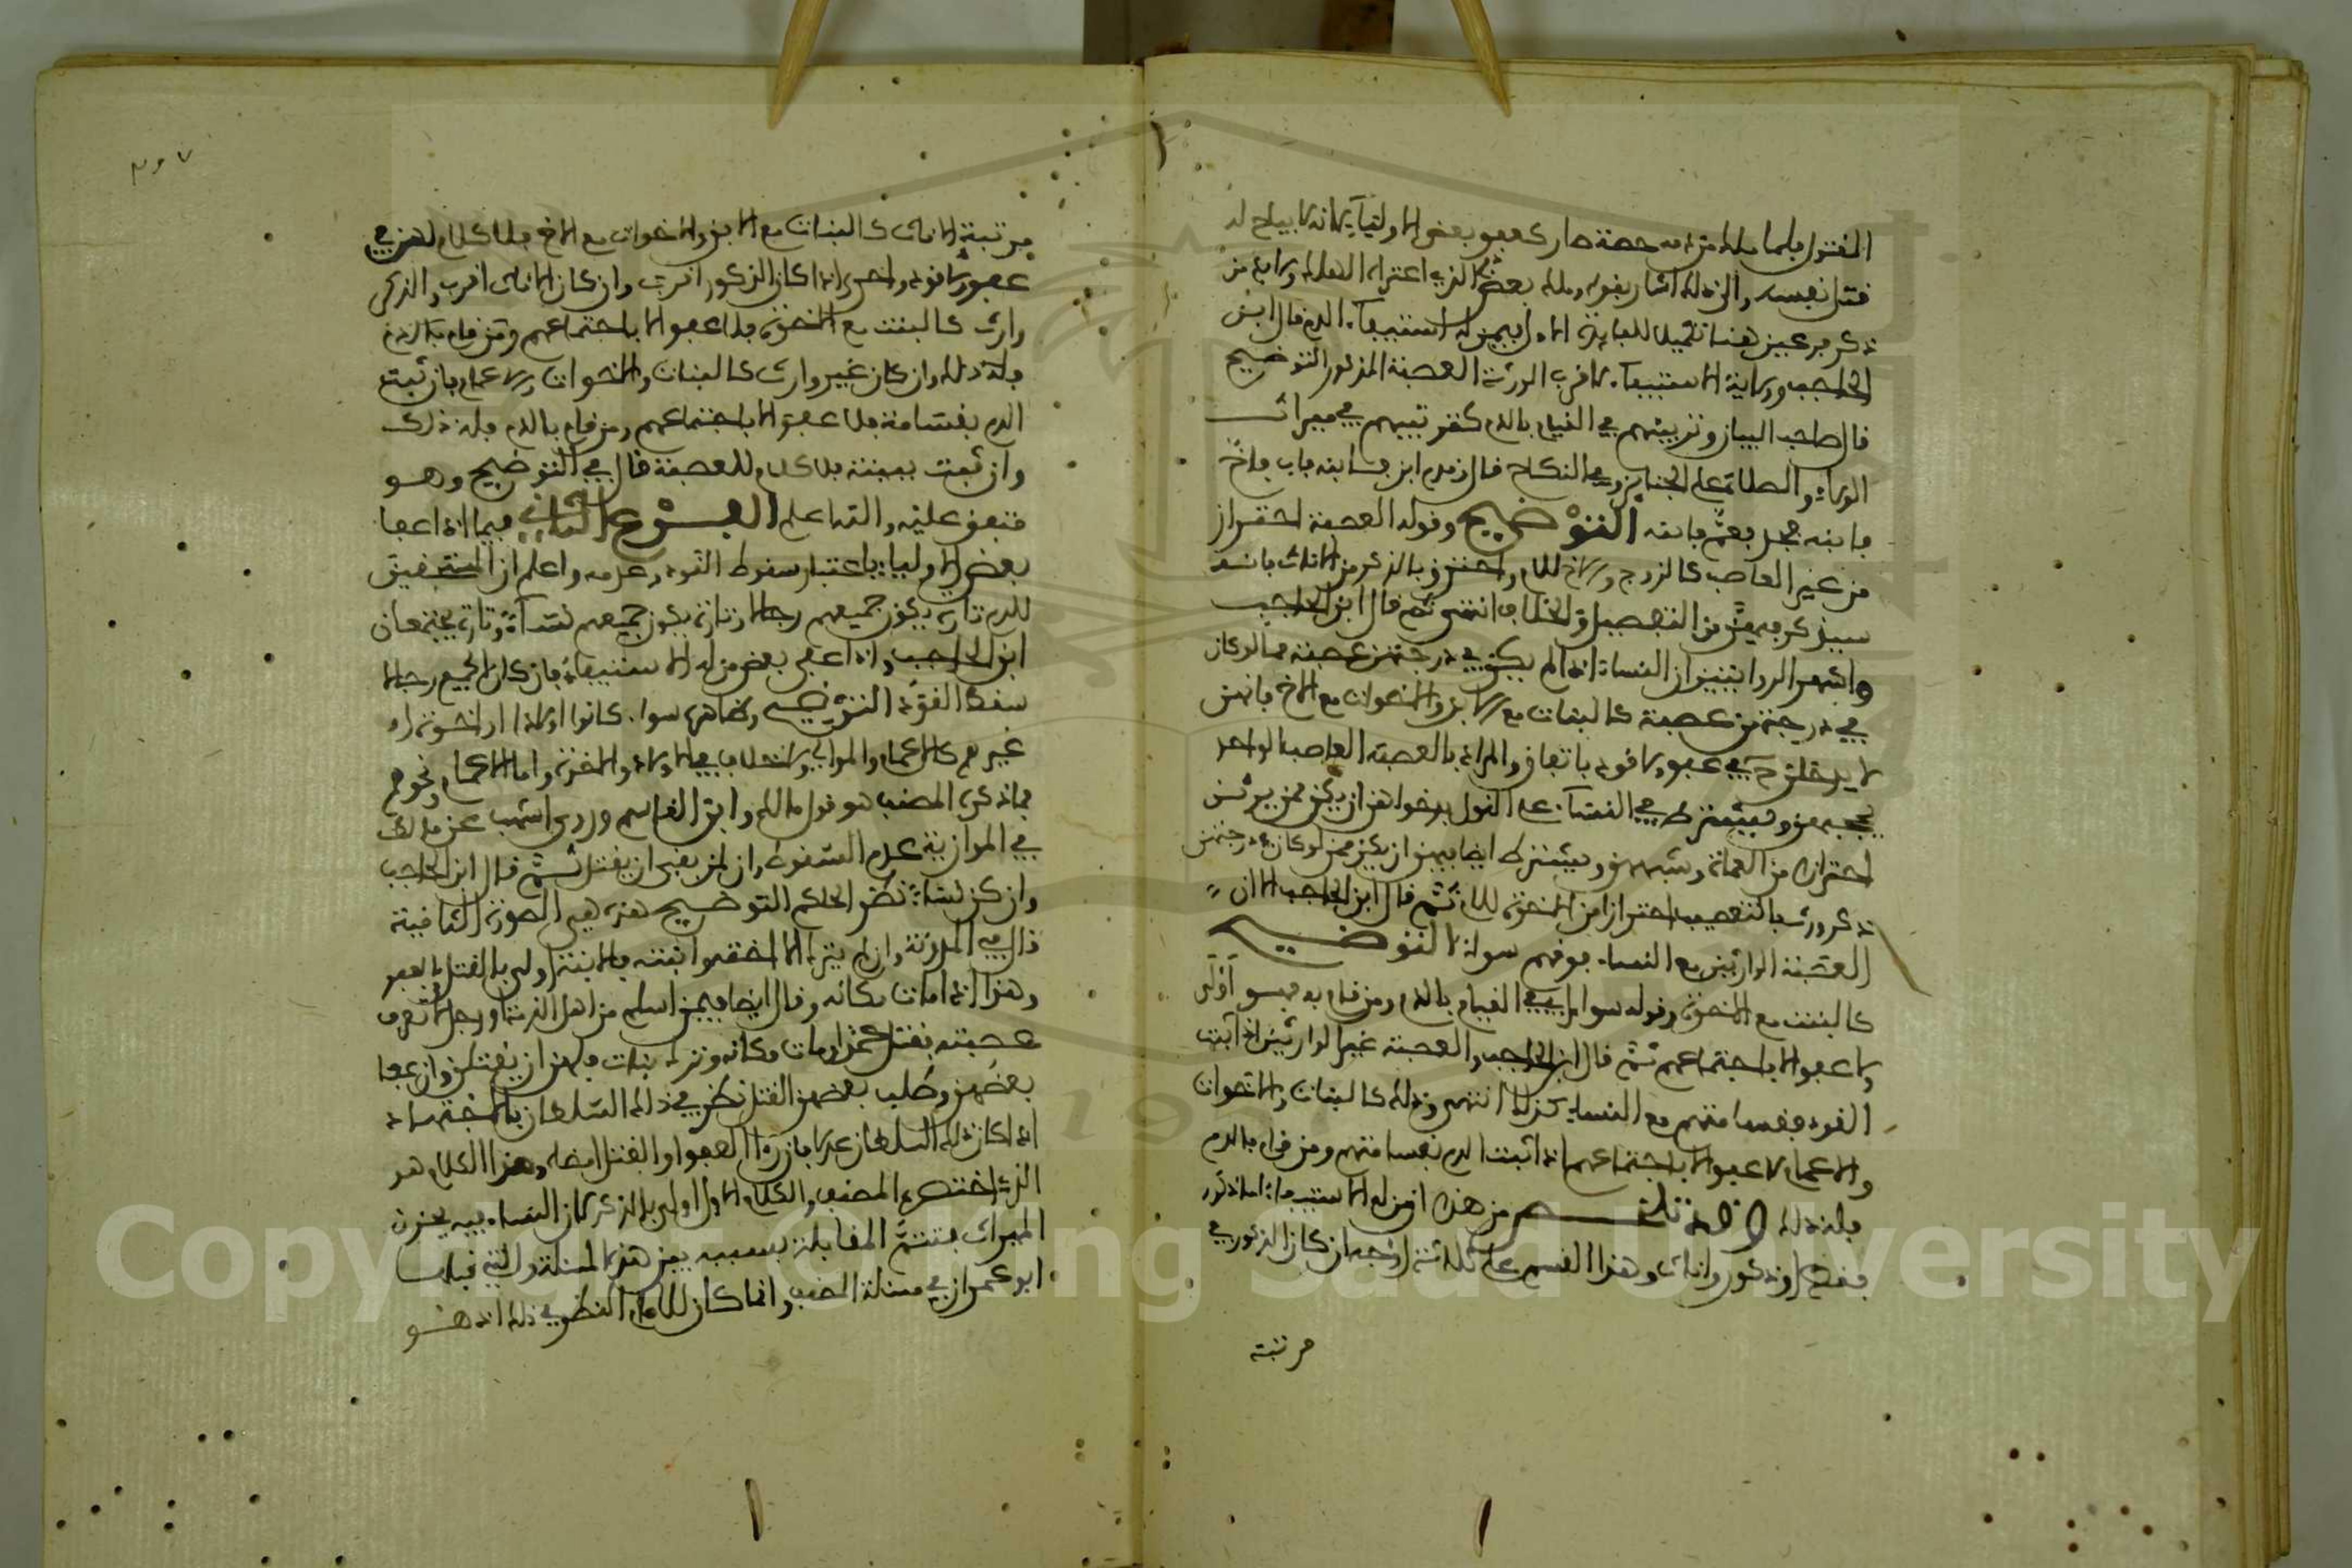 المقتول فلما ملك من دمه حصة صار كعفو بعض الاولياء لانه لا يباح له
قتل نفسه والى ذلك اشار بقوله وملك بعض
ذكر من عبيز هنا تكميل للفايدة الاولى فيمن له استيفاء الدم قال ابن
الحاجب وولاية الاستيفاء لاقرب الورثة العصبة المذكور التوضيح
قال صاحب البيان وترتيبهم في القيام بالدم كترتيبهم في ميراث
الولاء والصلاة على الجنايز وفي النكاح قال ذلك ابن فابنه فاب فاخ
فابنه فجد فعم فابنه التوضيح وقوله العصبة احترازا
من غير العاصب كالزوج والاخ للام واحترز بالذكر من الاناث فانه
سيذكر فيهن من التفصيل والخلاف انتهى ثم قال ابن الحاجب
واشهر الروايتين ان النساء اذا لم يكن في درجتهن عصبة
في درجتهن عصبة كالبنات مع الابن والاخوات مع الاخ فانهن
لا يدخلن في عفو ولا قود باتفاق والمراد بالعصبة العاصب الواحد
ويشترط في النساء على القول بدخولهن ان يكن ممن يرثن
احترازا من العمات وشبههن ويشترط ايضا فيهن ان يكن ممن لو كان في درجتهن
ذكر ورث بالتعصيب احترازا من الاخوة للام ثم قال ابن الحاجب
العصبة الوارثين مع النساء سواء التوضيح
كالبنت مع الاخوة وقوله سواء اي في القيام بالدم ومن قام به فهو اولى
ولا عفو الا باجتماعهم ثم قال ابن الحاجب والعصبة غير الوارثين اذا ثبت
القود بقسامتهم مع النساء كذلك انتهى وذلك كالبنات والاخوات
والاعمام لا عفو الا باجتماعهم اذا ثبت الدم بقسامتهم ومن قام بالدم
فله ذلك من هذا ان من له الاستيفاء اما ذكور
فقط او ذكور واناث وهذا القسم على ثلاثة اوجه ان كان الذكور في
مرتبة
مرتبة الاناث كالبنات مع الابن والاخوات مع الاخ فلا كلام لهن في
عفو ولا قود واحرى اذا كان الذكور اقرب وان كان الاناث اقرب والذكر
وارث كالبنت مع الاخوة فلا عفو الا باجتماعهم ومن قام بالدم
فله ذلك وان كان غير وارث كالبنات والاخوات والاعمام فان ثبت
الدم بقسامة فلا عفو الا باجتماعهم ومن قام بالدم فله ذلك
وان ثبت ببينة فلا كلام للعصبة قال في التوضيح وهو
متفق عليه والله اعلم الفرع الثاني فيما اذا عفا
بعض الاولياء باعتبار سقوط القود وعدمه واعلم ان المستحقين
للدم تارة يكون جميعهم رجالا وتارة يكون جميعهم نساء وتارة يجتمعان
ابن الحاجب واذا عفى بعض من له الاستيفاء فان كان الجميع رجالا
سقط القود التوضيح وظاهره سواء كانوا اولادا او اخوة او
غيرهم كالاعمام والموالي ولا خلاف في الاولاد والاخوة واما الاعمام ونحوهم
فما ذكره المصنف هو قول مالك وابن القاسم وروى اشهب عن مالك
في الموازية عدم السقوط وان لمن بقي ان يقتل ثم قال ابن الحاجب
وان كن نساء نظر الحاكم التوضيح هذه هي الصورة الثانية
قال في المدونة وان لم يترك الا اخته وابنته فالابنة اولى بالقتل او العفو
وهذا اذا مات مكانه وقال ايضا فيمن اسلم من اهل الذمة او رجل لا تعرف
عصبته فقتل عمدا ومات مكانه وترك بنات فلهن ان يقتلن وان عفا
بعضهن وطلب بعضهن القتل نظر في ذلك السلطان بالاجتهاد
اذا كان ذلك السلطان عدلا فان راى العفو او القتل امضاه وهذا الكلام هو
الذي اختصره المصنف والكلام الاول اولى بالذكر لان النساء فيه يحزن
الميراث فتتم المقابلة بسببه بين هذه المسئلة والتي قبلها
ابو عمران في مسئلة المصنف وانما كان للامام النظر في ذلك اذ هو